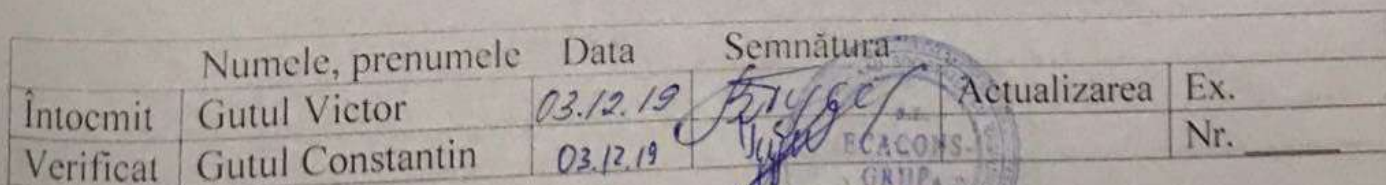 Numele, prenumele Data Semnătura
Întocmit Gutul Victor 03.12.19 Actualizarea Ex.
Verificat Gutul Constantin 03.12.19 Nr. ______
ECACONS-
GRUP